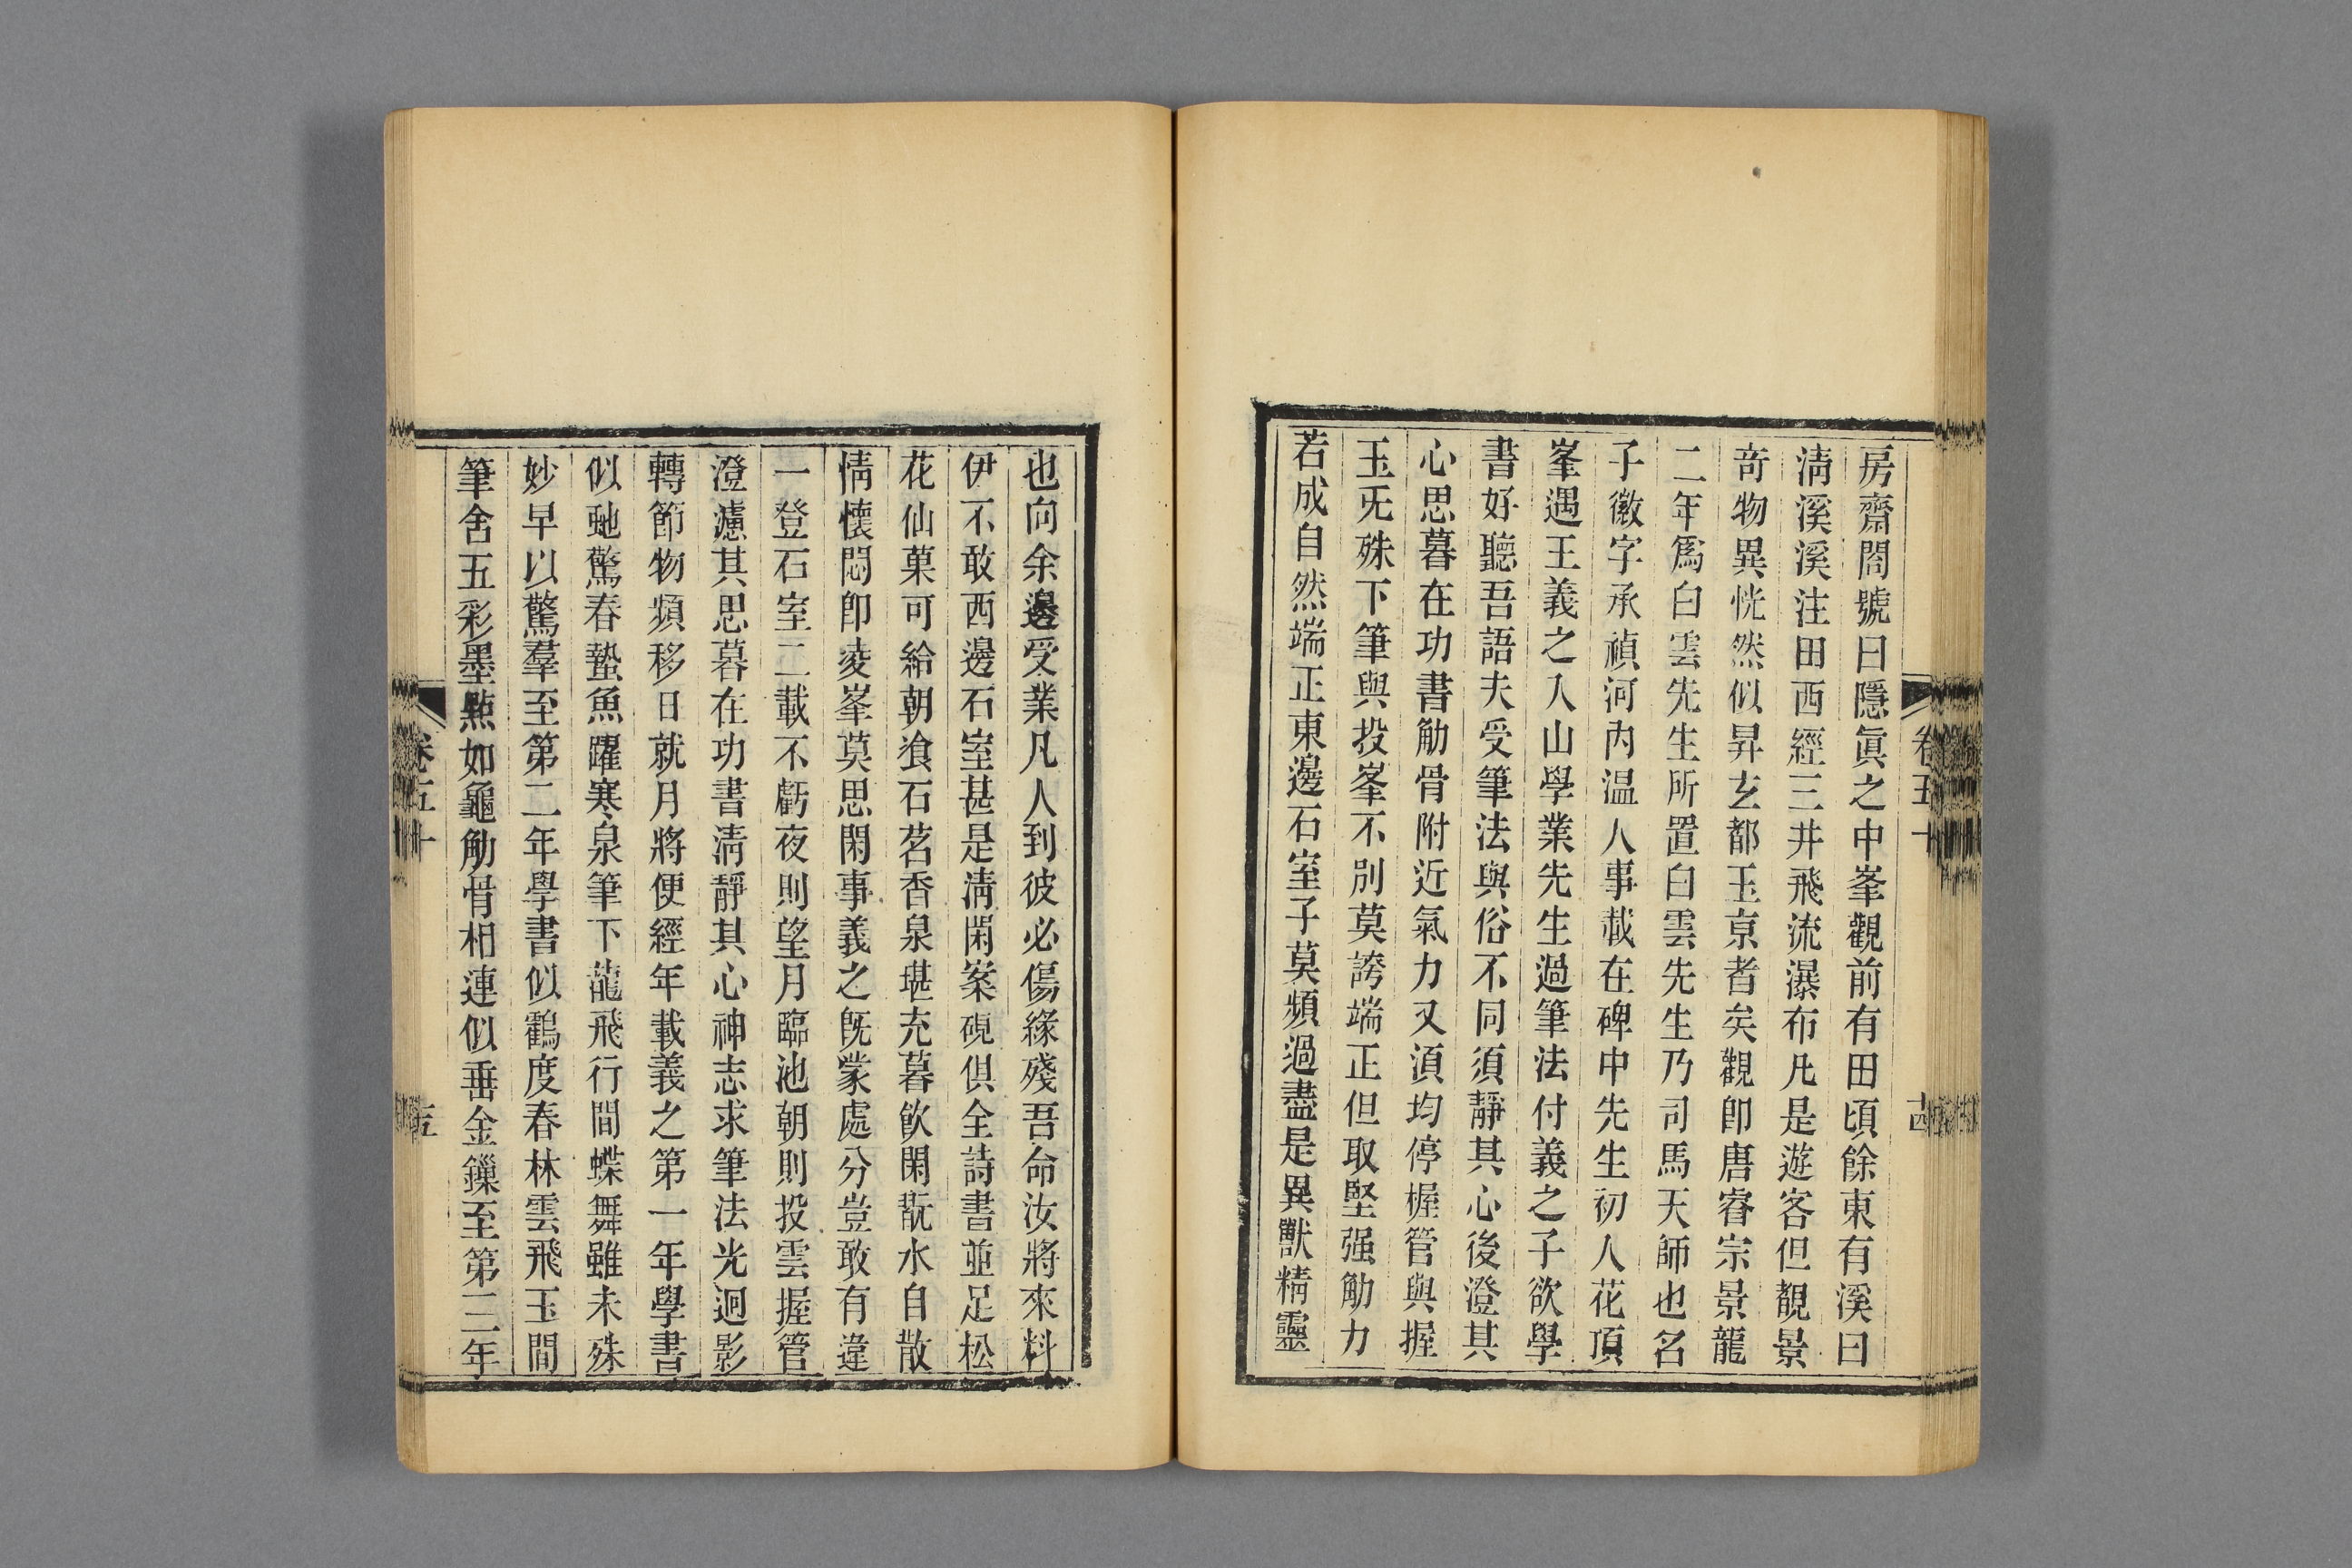 房齋閤號曰隱眞之中峯觀前有田頃餘東有溪曰
淸溪溪注田西經三井飛流瀑布凡是遊客但覩景
竒物異恍然似昇玄都玉京者矣觀卽唐睿宗景龍
二年爲白雲先生所置白雲先生乃司馬天師也名
子徽字承禎河內温人事載在碑中先生初人花頂
峯遇王義之入山學業先生過筆法付義之子欲學
書好聽吾語夫受筆法與俗不同須靜其心後澄其
心思暮在功書觔骨附近氣力又湏均停楃管與握
玉旡殊下筆與投峯不別莫誇端正但取堅强觔力
若成自然端正東邊石室子莫頻過盡是異獸精靈
卷五十
十四
也向余邊受業凡人到彼必傷緣殘吾命汝將來料
伊不敢西邊石室甚是淸閑案硯俱全詩書並足松
花仙菓可給朝飡石茗香泉堪充暮飮閑翫水自散
情懷悶卽凌峯莫思閑事義之旣蒙處分豈敢有違
一登石室二載不虧夜則望月臨池朝則投雲握管
澄濾其思暮在功書淸靜其心神志求筆法光迴影
轉節物頻移日就月將便經年載義之第一年學書
似虵驚春蟄魚躍寒泉筆下龍飛行間蝶舞雖未殊
妙早以驚羣至第二年學書似鸖度春林雲飛玉間
筆舍五彩墨㸃如龜觔骨相連似垂金鏁至第三年
卷五十
十五